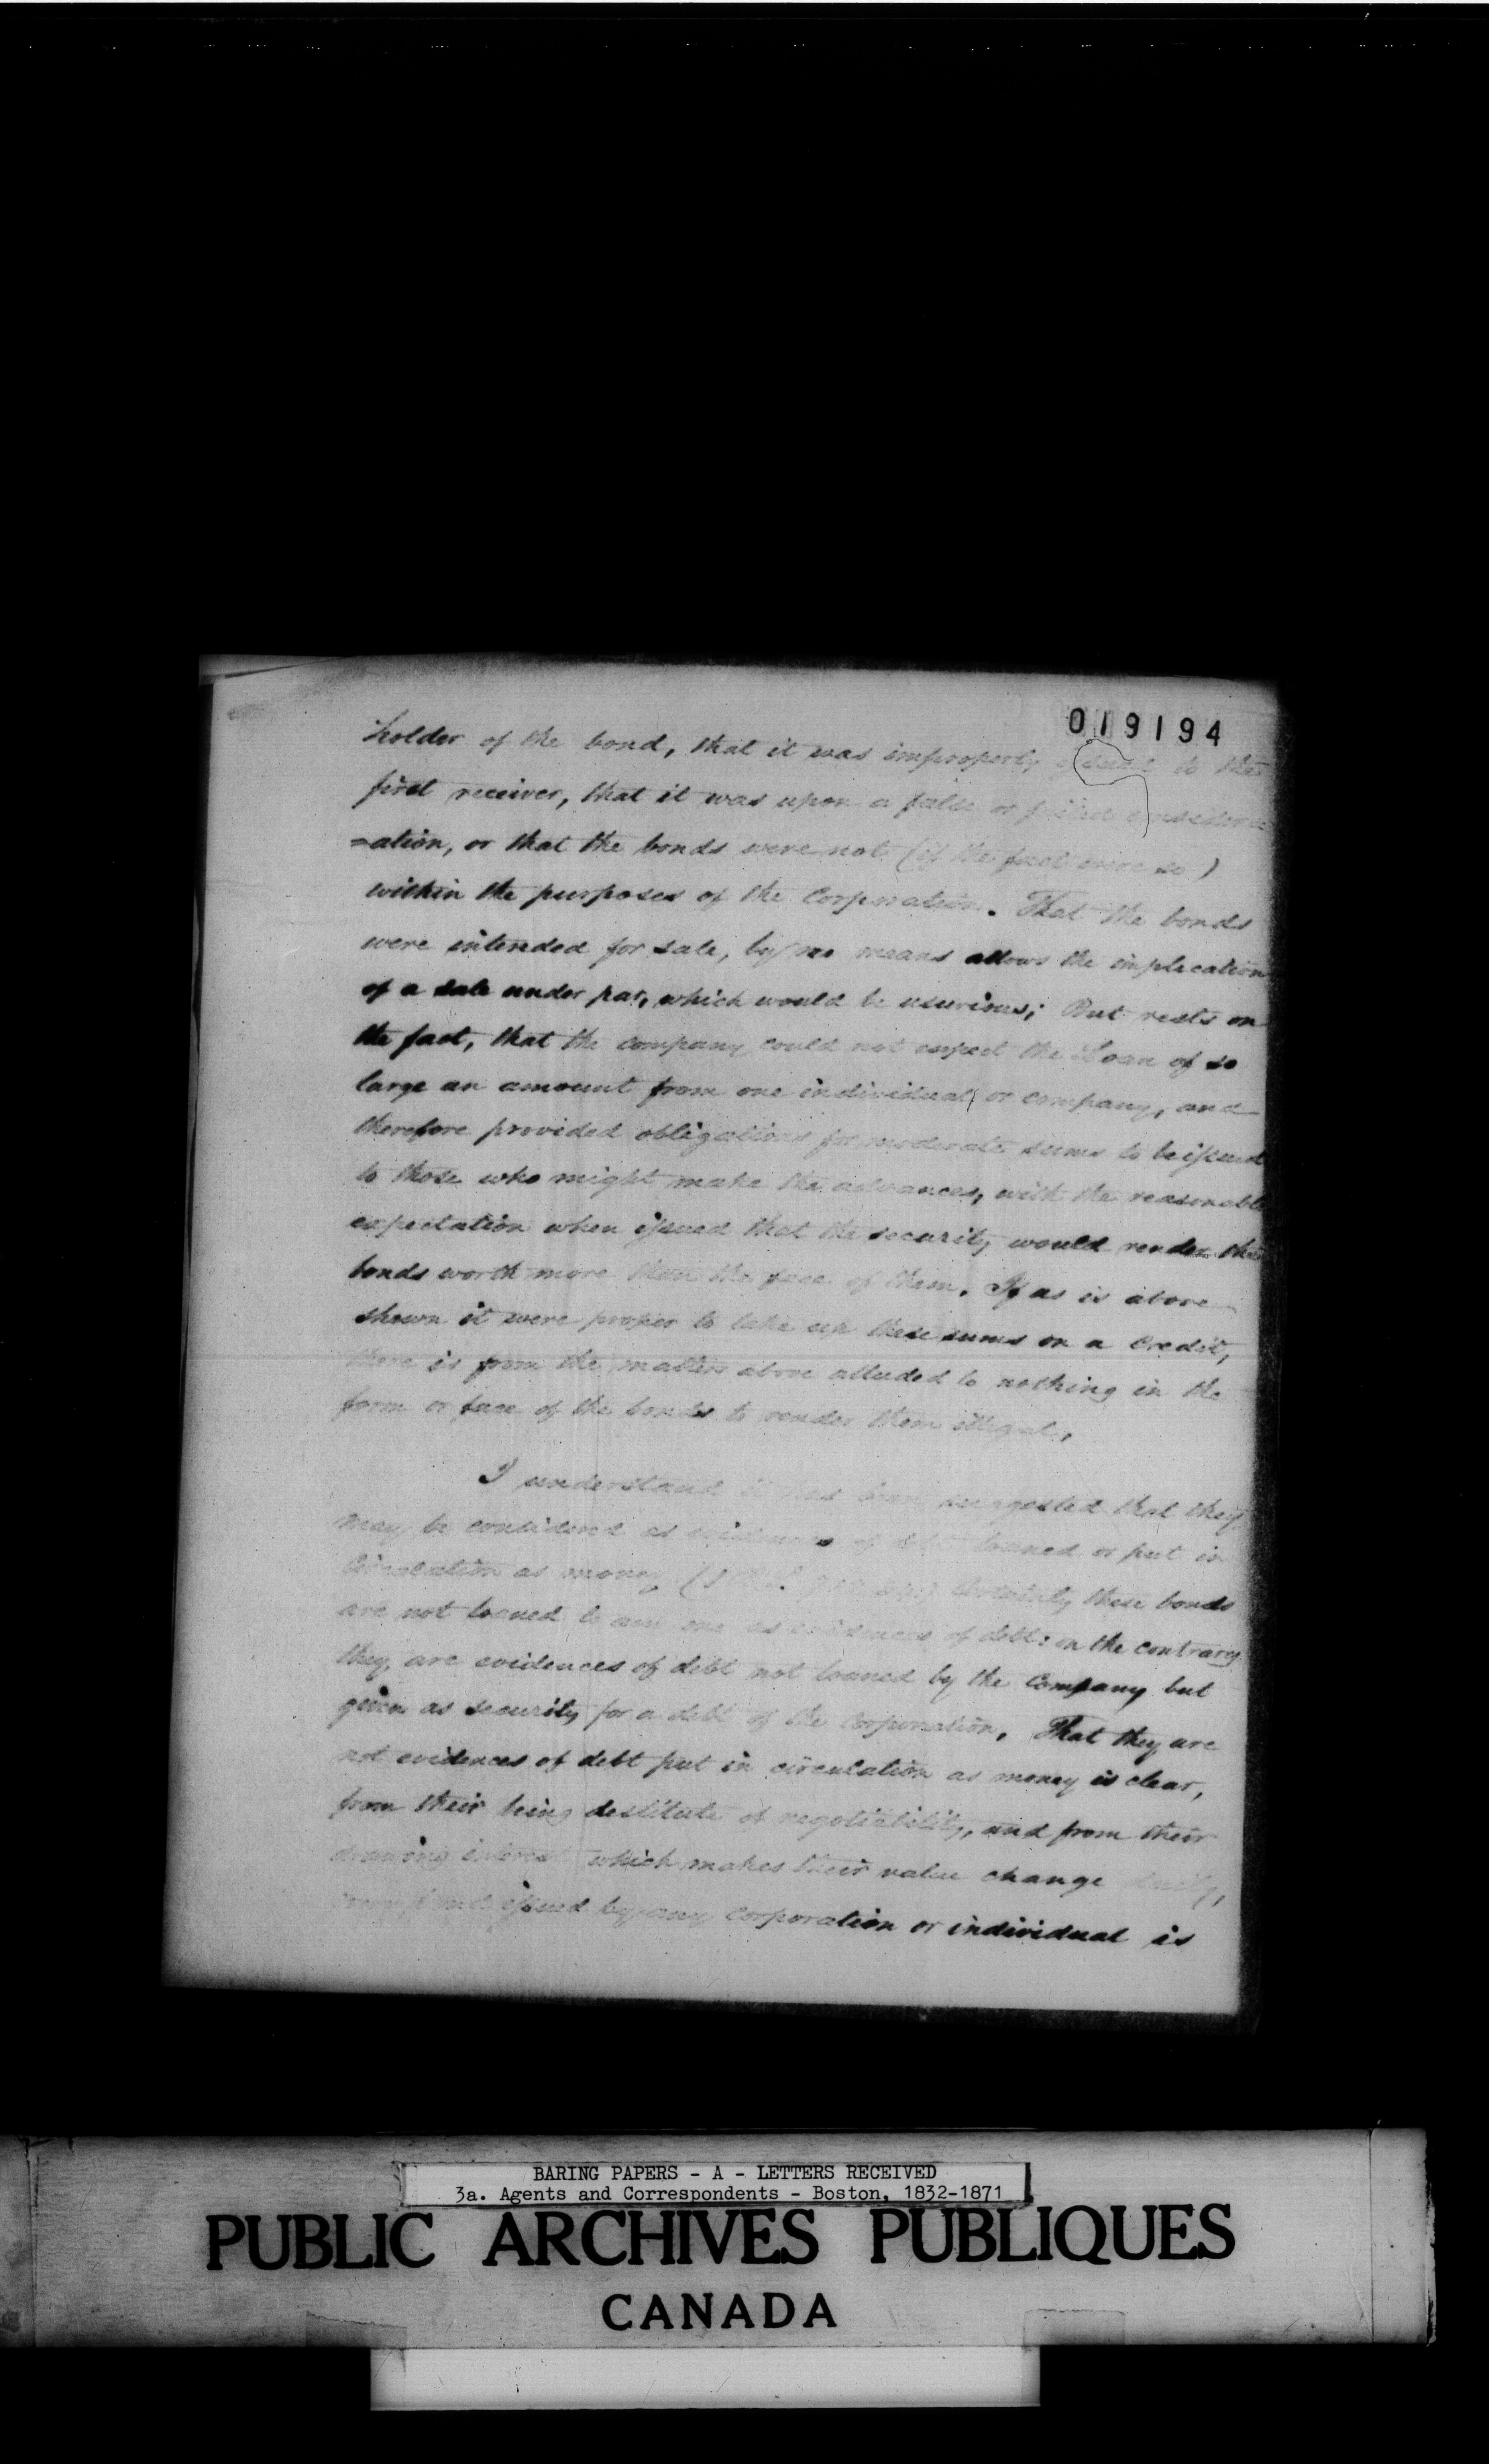 019194
holder of the bond, that it was improperly issued to the
first receiver, that it was upon a false or failed consider
=ation, or that the bonds were not (if the fact were so)
within the purposes of the Corporation. That the bonds
were intended for sale, by no means allows the implication
of a sale under par, which would be usurious; But rests on
the fact, that the company could not expect the Loan of so
large an amount from one individual or company, and
therefore provided obligations for moderate sums to be issued
to those who might make the advances, with the reasonable
expectation when issued that the security would render the
bonds worth more than the face of them. If as is above
shewn it were proper to take up these sums on a Credit,
there is from the matters above alluded to nothing in the
form or face of the bonds to render them illegal.
I understand it has been suggested that they
may be considered as evidences of debt loaned or put in
Circulation as money, (1 R.S. Certainly these bonds
are not loaned to any one as evidences of debt: on the contrary
they are evidences of debt not loaned by the Company but
given as security for a debt of the Corporation. That they are
not evidences of debt put in circulation as money is clear,
from their being destitute of negotiability, and from their
drawing interest which makes their value change daily,
issued by any Corporation or individual is
BARING PAPERS - A - LETTERS RECEIVED
3a. Agents and Correspondents - Boston, 1832-1871
PUBLIC ARCHIVES PUBLIQUES
CANADA